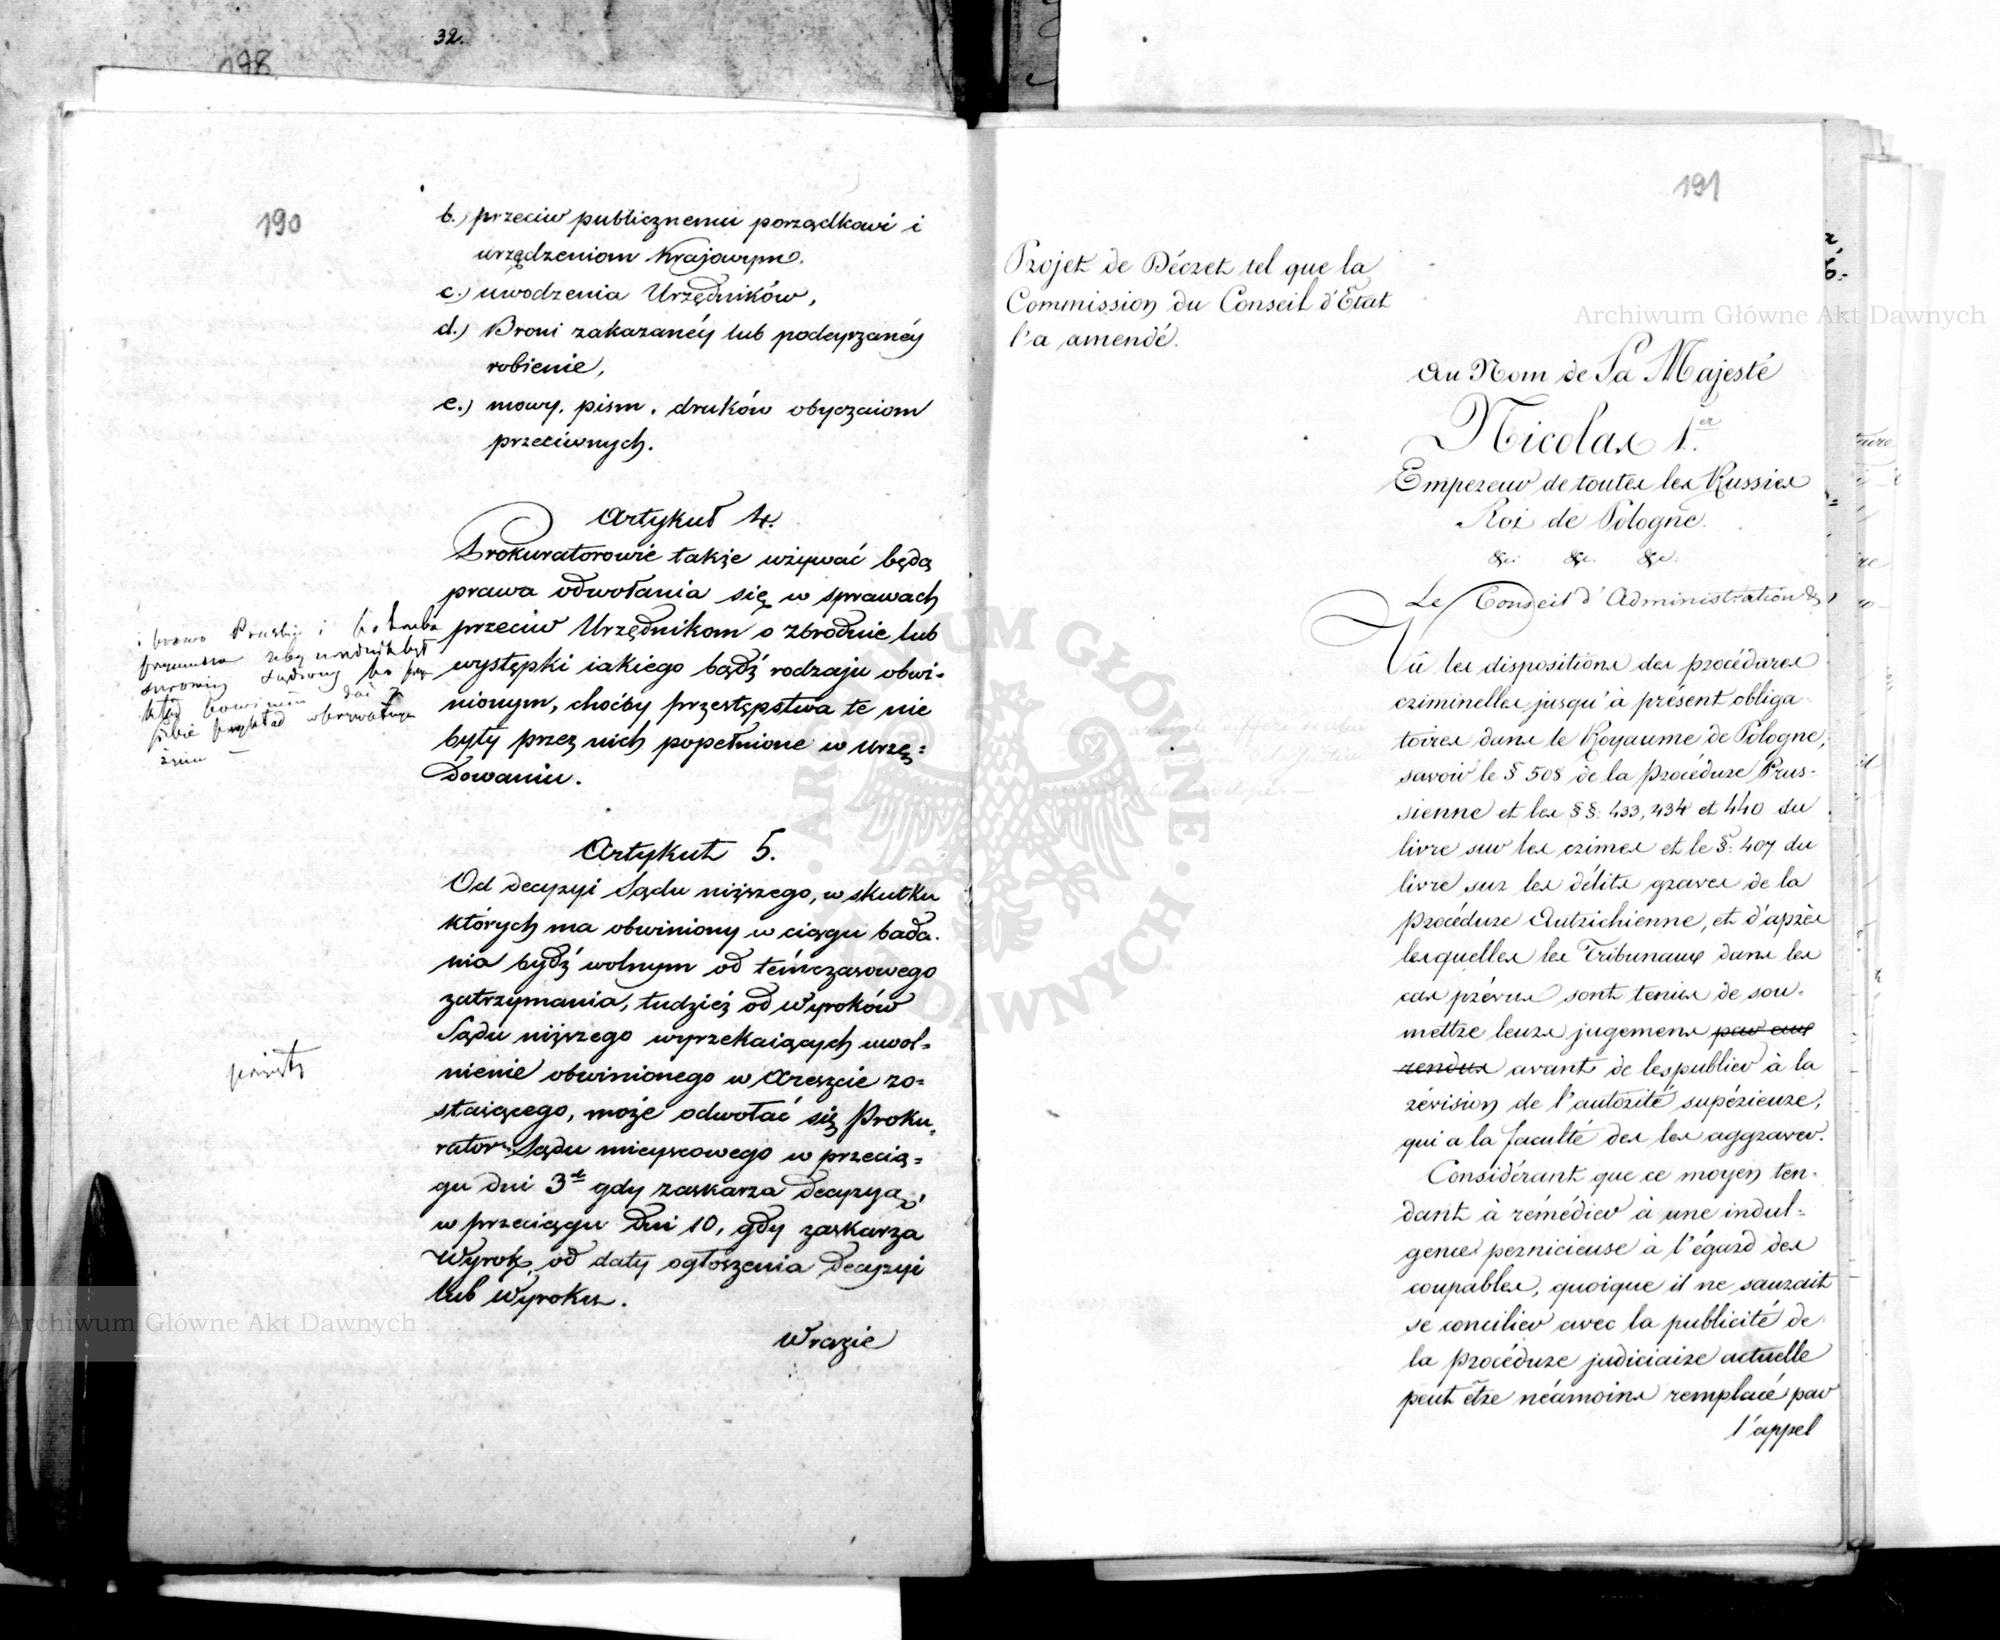 32.
198
190
b.) przeciw publicznemu porządkowi i
urządzeniom Krajowym.
c.) uwodzenia Urzędników,
d.) Broni zakazanéy lub podeyrzanéy
robienie,
e.) mowy, pism, druków obyczaiom
przeciwnych.
Artykuł 4.
Prokuratorowie także używać będą
prawa odwołania się w sprawach
przeciw Urzędnikom o zbrodnie lub
występki iakiego bądź rodzaju obwi-
nionym, choćby przestępstwa te nie
były przez nich popełnione w urzę=
dowaniu.
i prawo Pruskie i
surowiey sądzony bo
przykład
Artykuł 5.
Od decyzyi Sądu niższego, w skutku
których ma obwiniony w ciągu bada-
nia bydź wolnym od temczasowego
zatrzymania, tudzież od Wyroków
Sądu niższego wyrzekaiących uwol=
nienie obwinionego w Areszcie zo=
staiącego, może odwołać się Proku=
rator Sądu mieyscowego w przecią=
gu dni 3ch gdy zaskarza decyzyą,
w przeciągu Dni 10, gdy zaskarza
Wyrok, od daty ogłoszenia Decyzyi
lub Wyroku.
W razie
191
Projet de Décret tel que la
Commission du Conseil d'Etat
l'a amendé.
Au Nom de Sa Majesté
Nicolas 1.er
Empereur de toutes les Russies
Roi de Pologne.
&c. &c. &c.
Le Conseil d'Administration &
Vû les dispositions des procédures
criminelles jusqu'à présent obliga-
toires dans le Royaume de Pologne,
savoir le § 508 de la procédure Prus-
sienne et les §§. 433, 434 et 440 du
livre sur les crimes et le §. 407 du
livre sur les délits graves de la
procédure Autrichienne, et d'après
lesquelles les Tribunaux dans les
cas prévus sont tenus de sou-
mettre leurs jugemens par eux
rendus avant de les publier à la
révision de l'autorité supérieure,
qui a la faculté des les aggraver.
Considérant que ce moyen ten-
dant à rémédier à une indul=
gence pernicieuse à l'égard des
coupables, quoique il ne saurait
se concilier avec la publicité de
la procédure judiciaire actuelle
peut être néamoins remplacé par
l'appel
Archiwum Główne Akt Dawnych
Archiwum Główne Akt Dawnych
ARCHIWUM GŁÓWNE AKT DAWNYCH